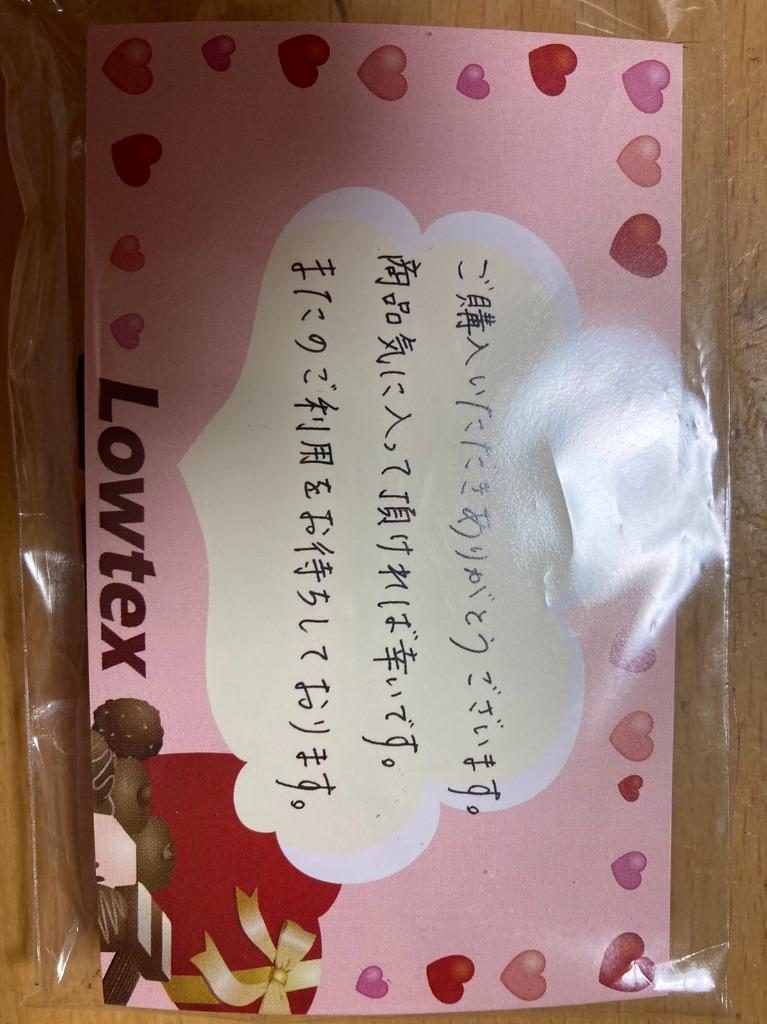 ご購入いただきありがとうございます。
商品気に入って頂ければ幸いです。
またのご利用をお待ちしております。
Lowtex